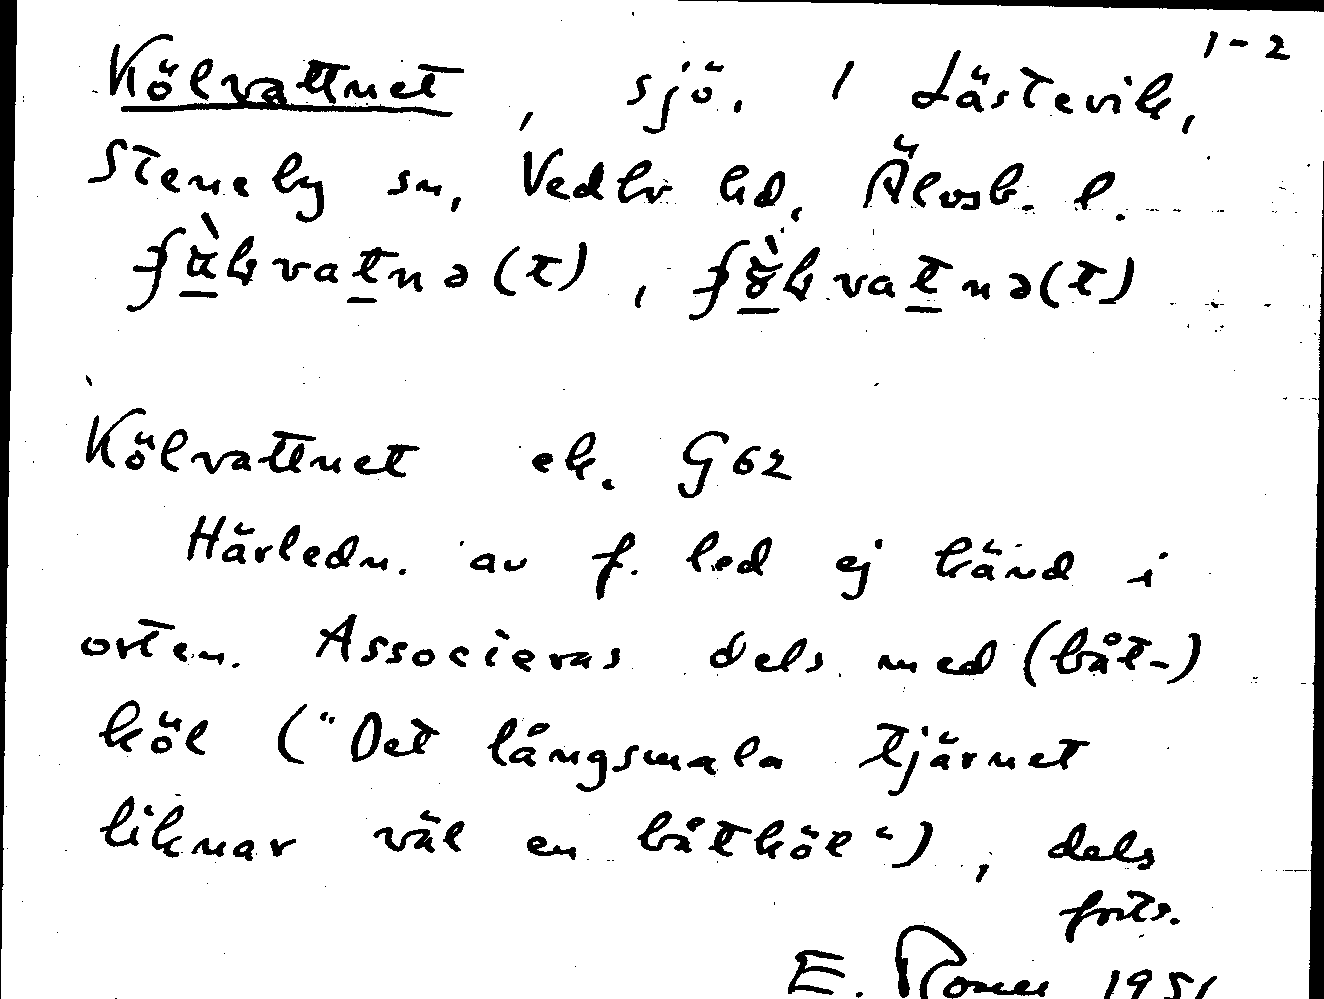 1-2
Kölvattnet, sjö. / Lästevik,
Steneby sn, Vedbv hd, Älvsb. l.
vatnə(t), vatnə(t)
Kölvattnet ek. G62
Härledn. av f. led ej känd i
orten. Associeras dels med (båt-)
köl ("Det långsmala tjärnet
liknar väl en båtköl"), dels
forts.
E. 1951